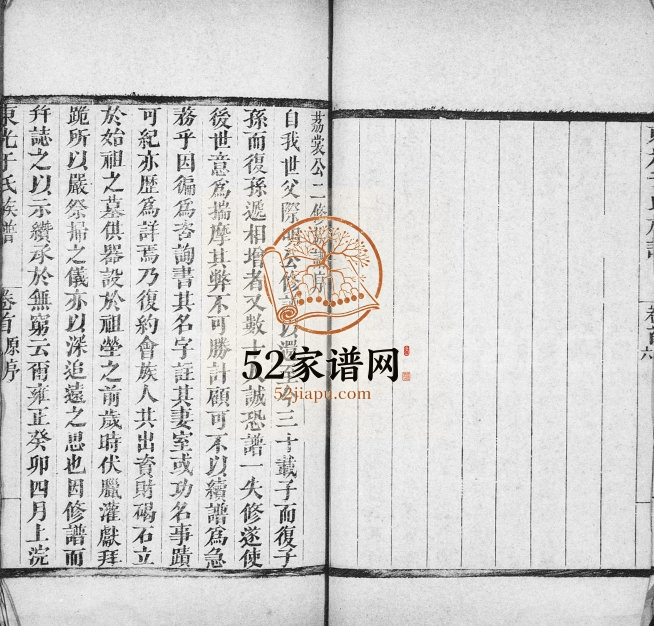 東光于氏族譜 卷首 六
荔裳公二修
自我世父際 公修 以 三十載子而復子
孫而復孫遞相增者又數十 誠恐譜一失修遂使
後世意為揣摩其弊不可勝計顧可不以續譜為急
務乎因徧為咨詢書其名字註其妻室或功名事蹟
可紀亦歷為詳焉乃復約會族人共出資財碣石立
於始祖之墓供器設於祖塋之前歲時伏臘灌獻拜
跪所以嚴祭掃之儀亦以深追遠之思也因修譜而
幷誌之以示纘承於無窮云爾雍正癸卯四月上浣
東光于氏族譜 卷首 原序
52家谱网
52jiapu.com